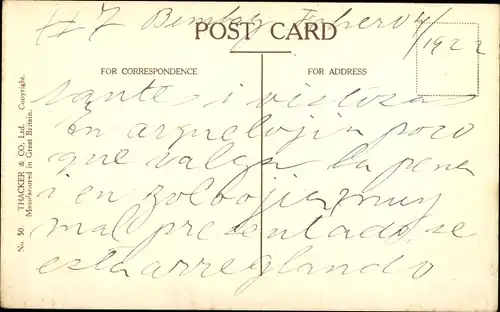 #7 Bombay Febrero 4/1922
POST CARD
FOR CORRESPONDENCE
FOR ADDRESS
santes i vistosas
En arquelojia poco
que valga la pena
i en zoolojia muy
mal presentado, se
esta arreglando
No. 50. THACKER & CO., Ltd. Copyright.
Manufactured in Great Britain.